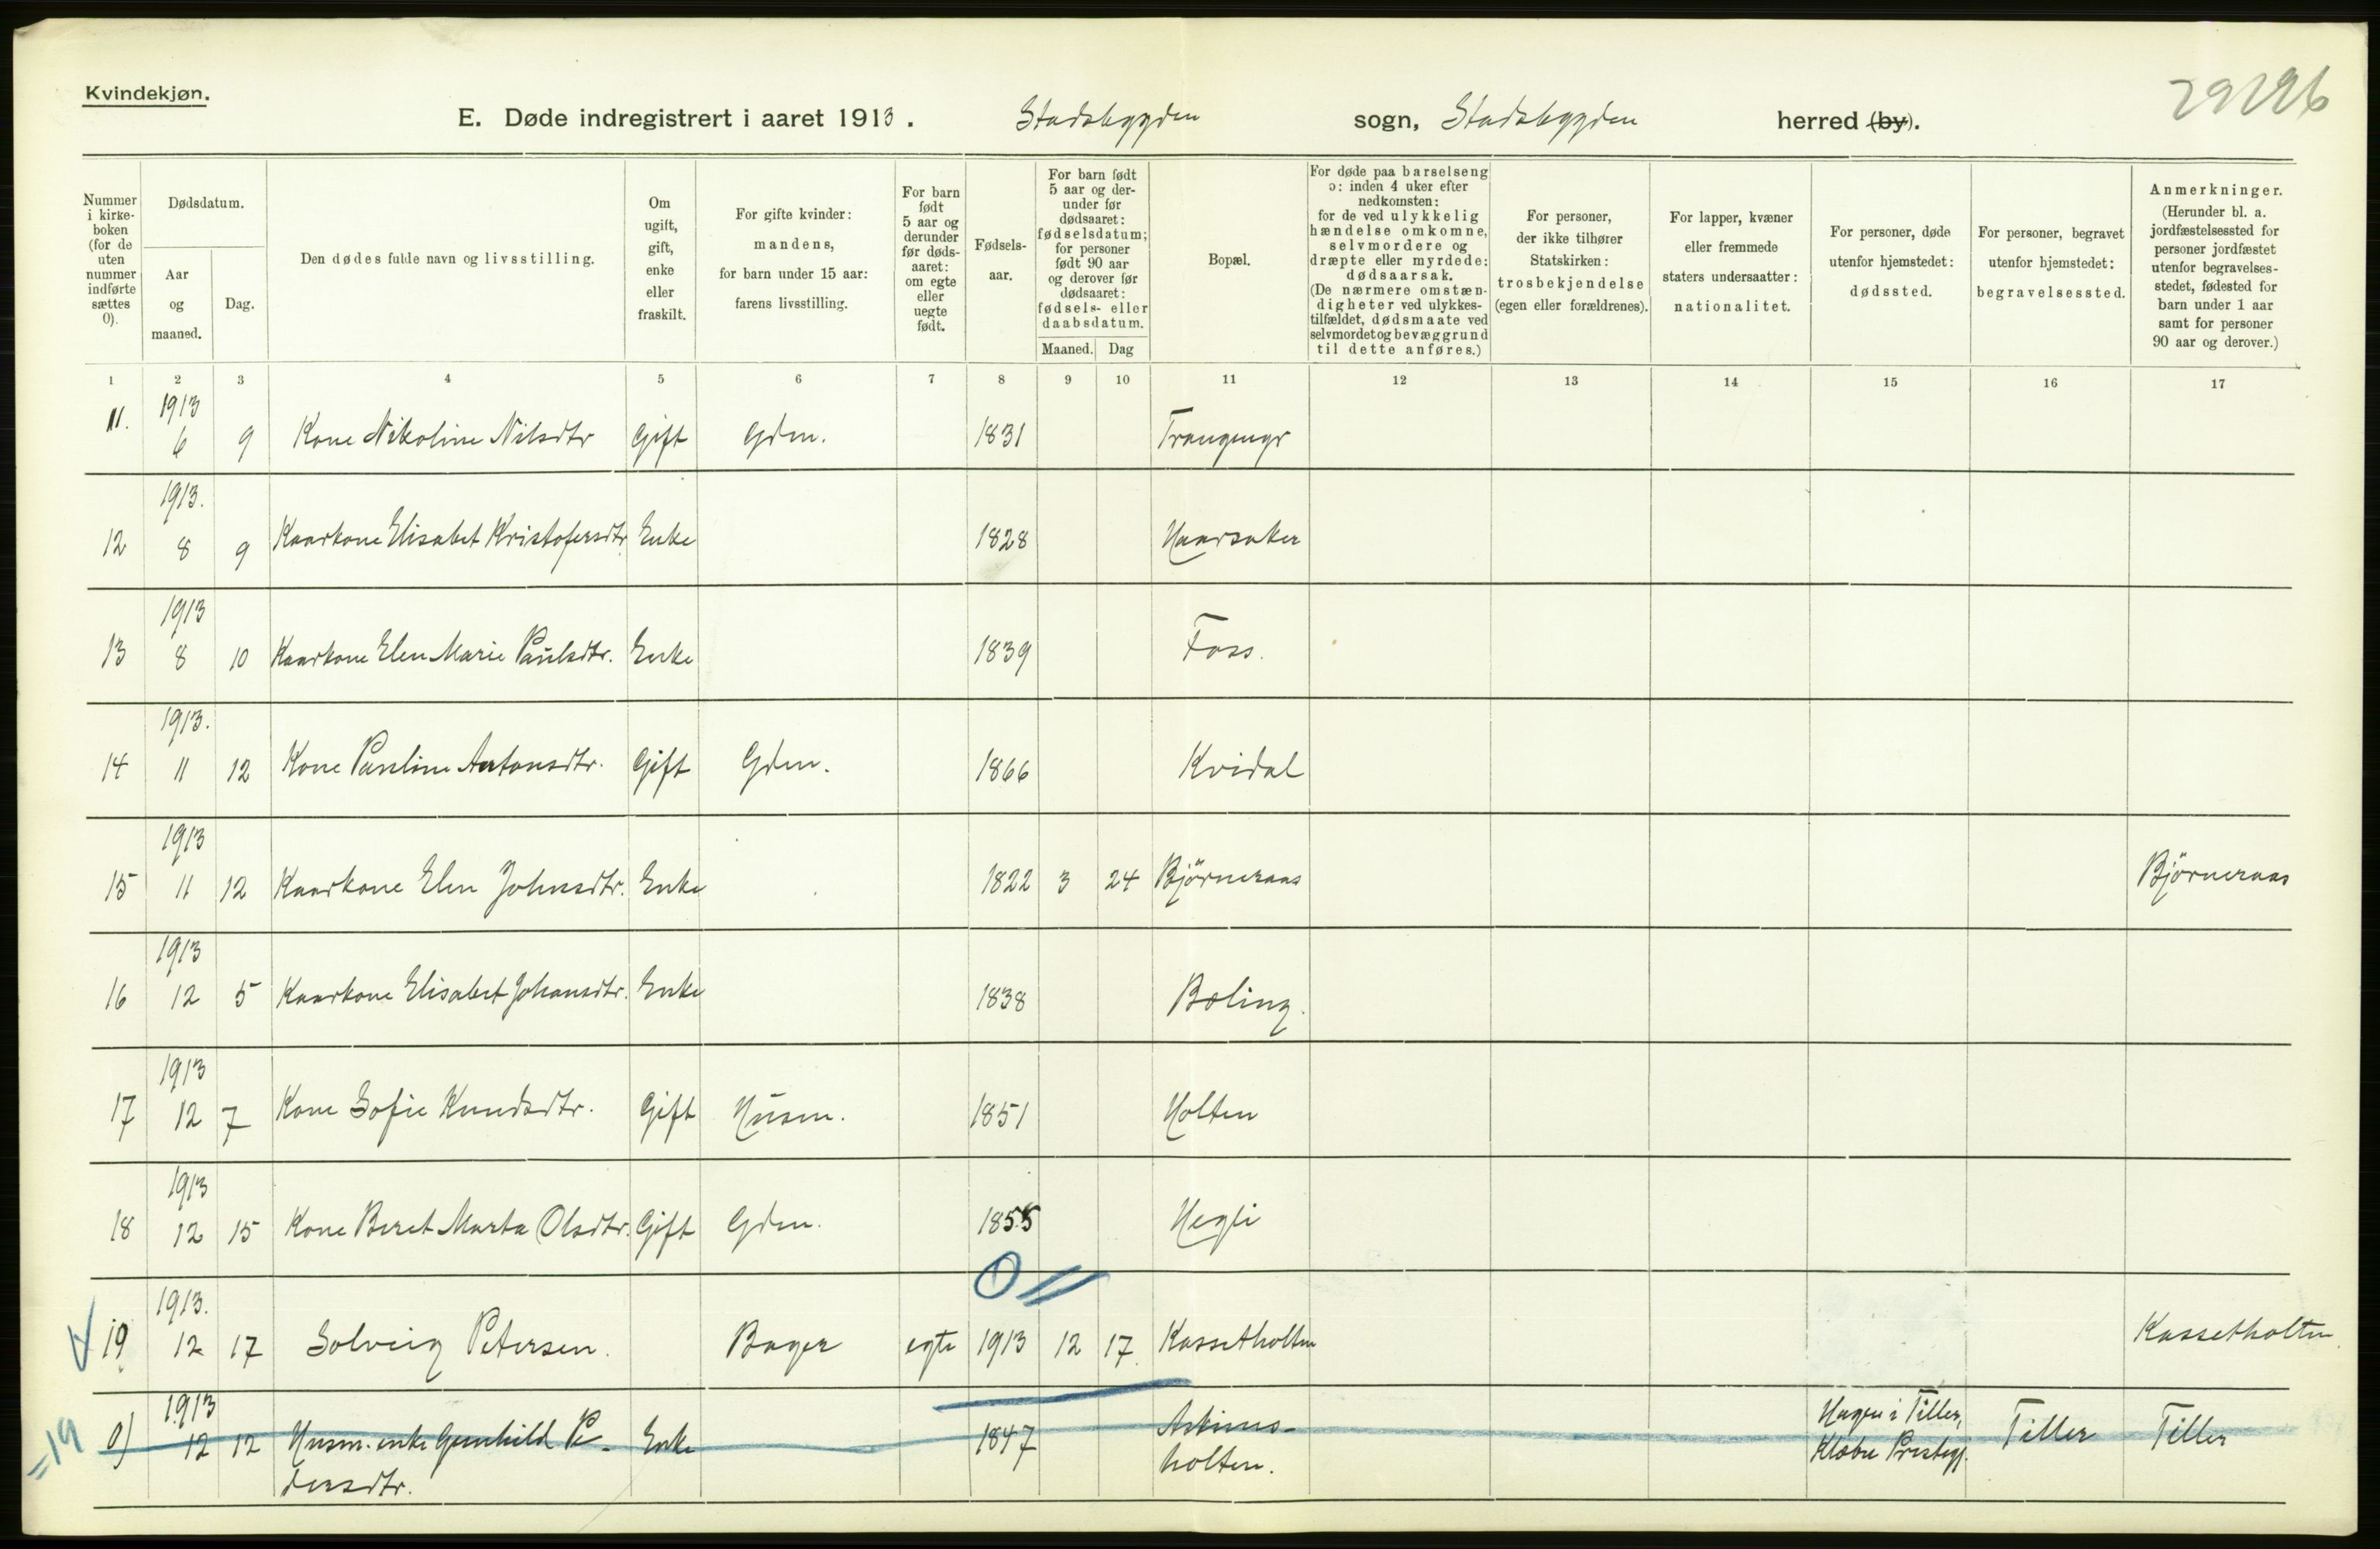 Kvindekjøn.
29296
E. Døde indregistrert i aaret 1913. Stadsbygden sogn, Stadsbygden herred (by).
Nummer i kirke-boken (for de uten nummer indførte sættes 0).
Dødsdatum.
Aar og maaned.
Dag.
Den dødes fulde navn og livsstilling.
Om ugift, gift, enke eller fraskilt.
For gifte kvinder: mandens, for barn under 15 aar: farens livsstilling.
For barn født 5 aar og derunder før døds-aaret: om egte eller uegte født.
Fødsels-aar.
For barn født 5 aar og der-under før dødsaaret: fødselsdatum; for personer født 90 aar og derover før dødsaaret: fødsels- eller daabsdatum.
Maaned. Dag
Bopæl.
For døde paa barselseng ɔ: inden 4 uker efter nedkomsten: for de ved ulykkelig hændelse omkomne, selvmordere og dræpte eller myrdede: dødsaarsak. (De nærmere omstæn-digheter ved ulykkes-tilfældet, dødsmaate ved selvmordet og bevæggrund til dette anføres.)
For personer, der ikke tilhører Statskirken: trosbekjendelse (egen eller forældrenes).
For lapper, kvæner eller fremmede staters undersaatter: nationalitet.
For personer, døde utenfor hjemstedet: dødssted.
For personer, begravet utenfor hjemstedet: begravelsessted.
Anmerkninger. (Herunder bl. a. jordfæstelsessted for personer jordfæstet utenfor begravelses-stedet, fødested for barn under 1 aar samt for personer 90 aar og derover.)
1 2 3 4 5 6 7 8 9 10 11 12 13 14 15 16 17
1913
11. 6 9 Kone Nikoline Nilsdtr Gift Gdm. 1831
1913.
12 8 9 Kaarkone Elisabet Kristofersdtr Enke 1828 Haarsaker
1913
13 8 10 Kaarkone Elen Marie Paulsdtr. Enke 1839 Foss.
1913.
14 11 12 Kone Pauline Antonsdtr. Gift Gdm. 1866 Kvidal
1913
15 11 12 Kaarkone Elen Johnsdtr. Enke 1822 3 24 Björneraas Björneraas
1913
16 12 5 Kaarkone Elisabet Johansdtr. Enke 1838 Boling.
1913
17 12 7 Kone Sofie Knudsdtr. Gift Husm. 1851 Holten
1913
18 12 15 Kone Beret Marta Olsdtr. Gift Gdm. 1855 Hegli
1913.
19 12 17 Solveig Petersen. Bager egte 1913 12 17. Kassetholten Kassetholten
1913
=19 0) 12 12 Husm. enke Gunhild Pe- Enke 1847 holten. Hagen i Tiller, Klæbu Prestegj. Tiller Tiller
dersdtr.